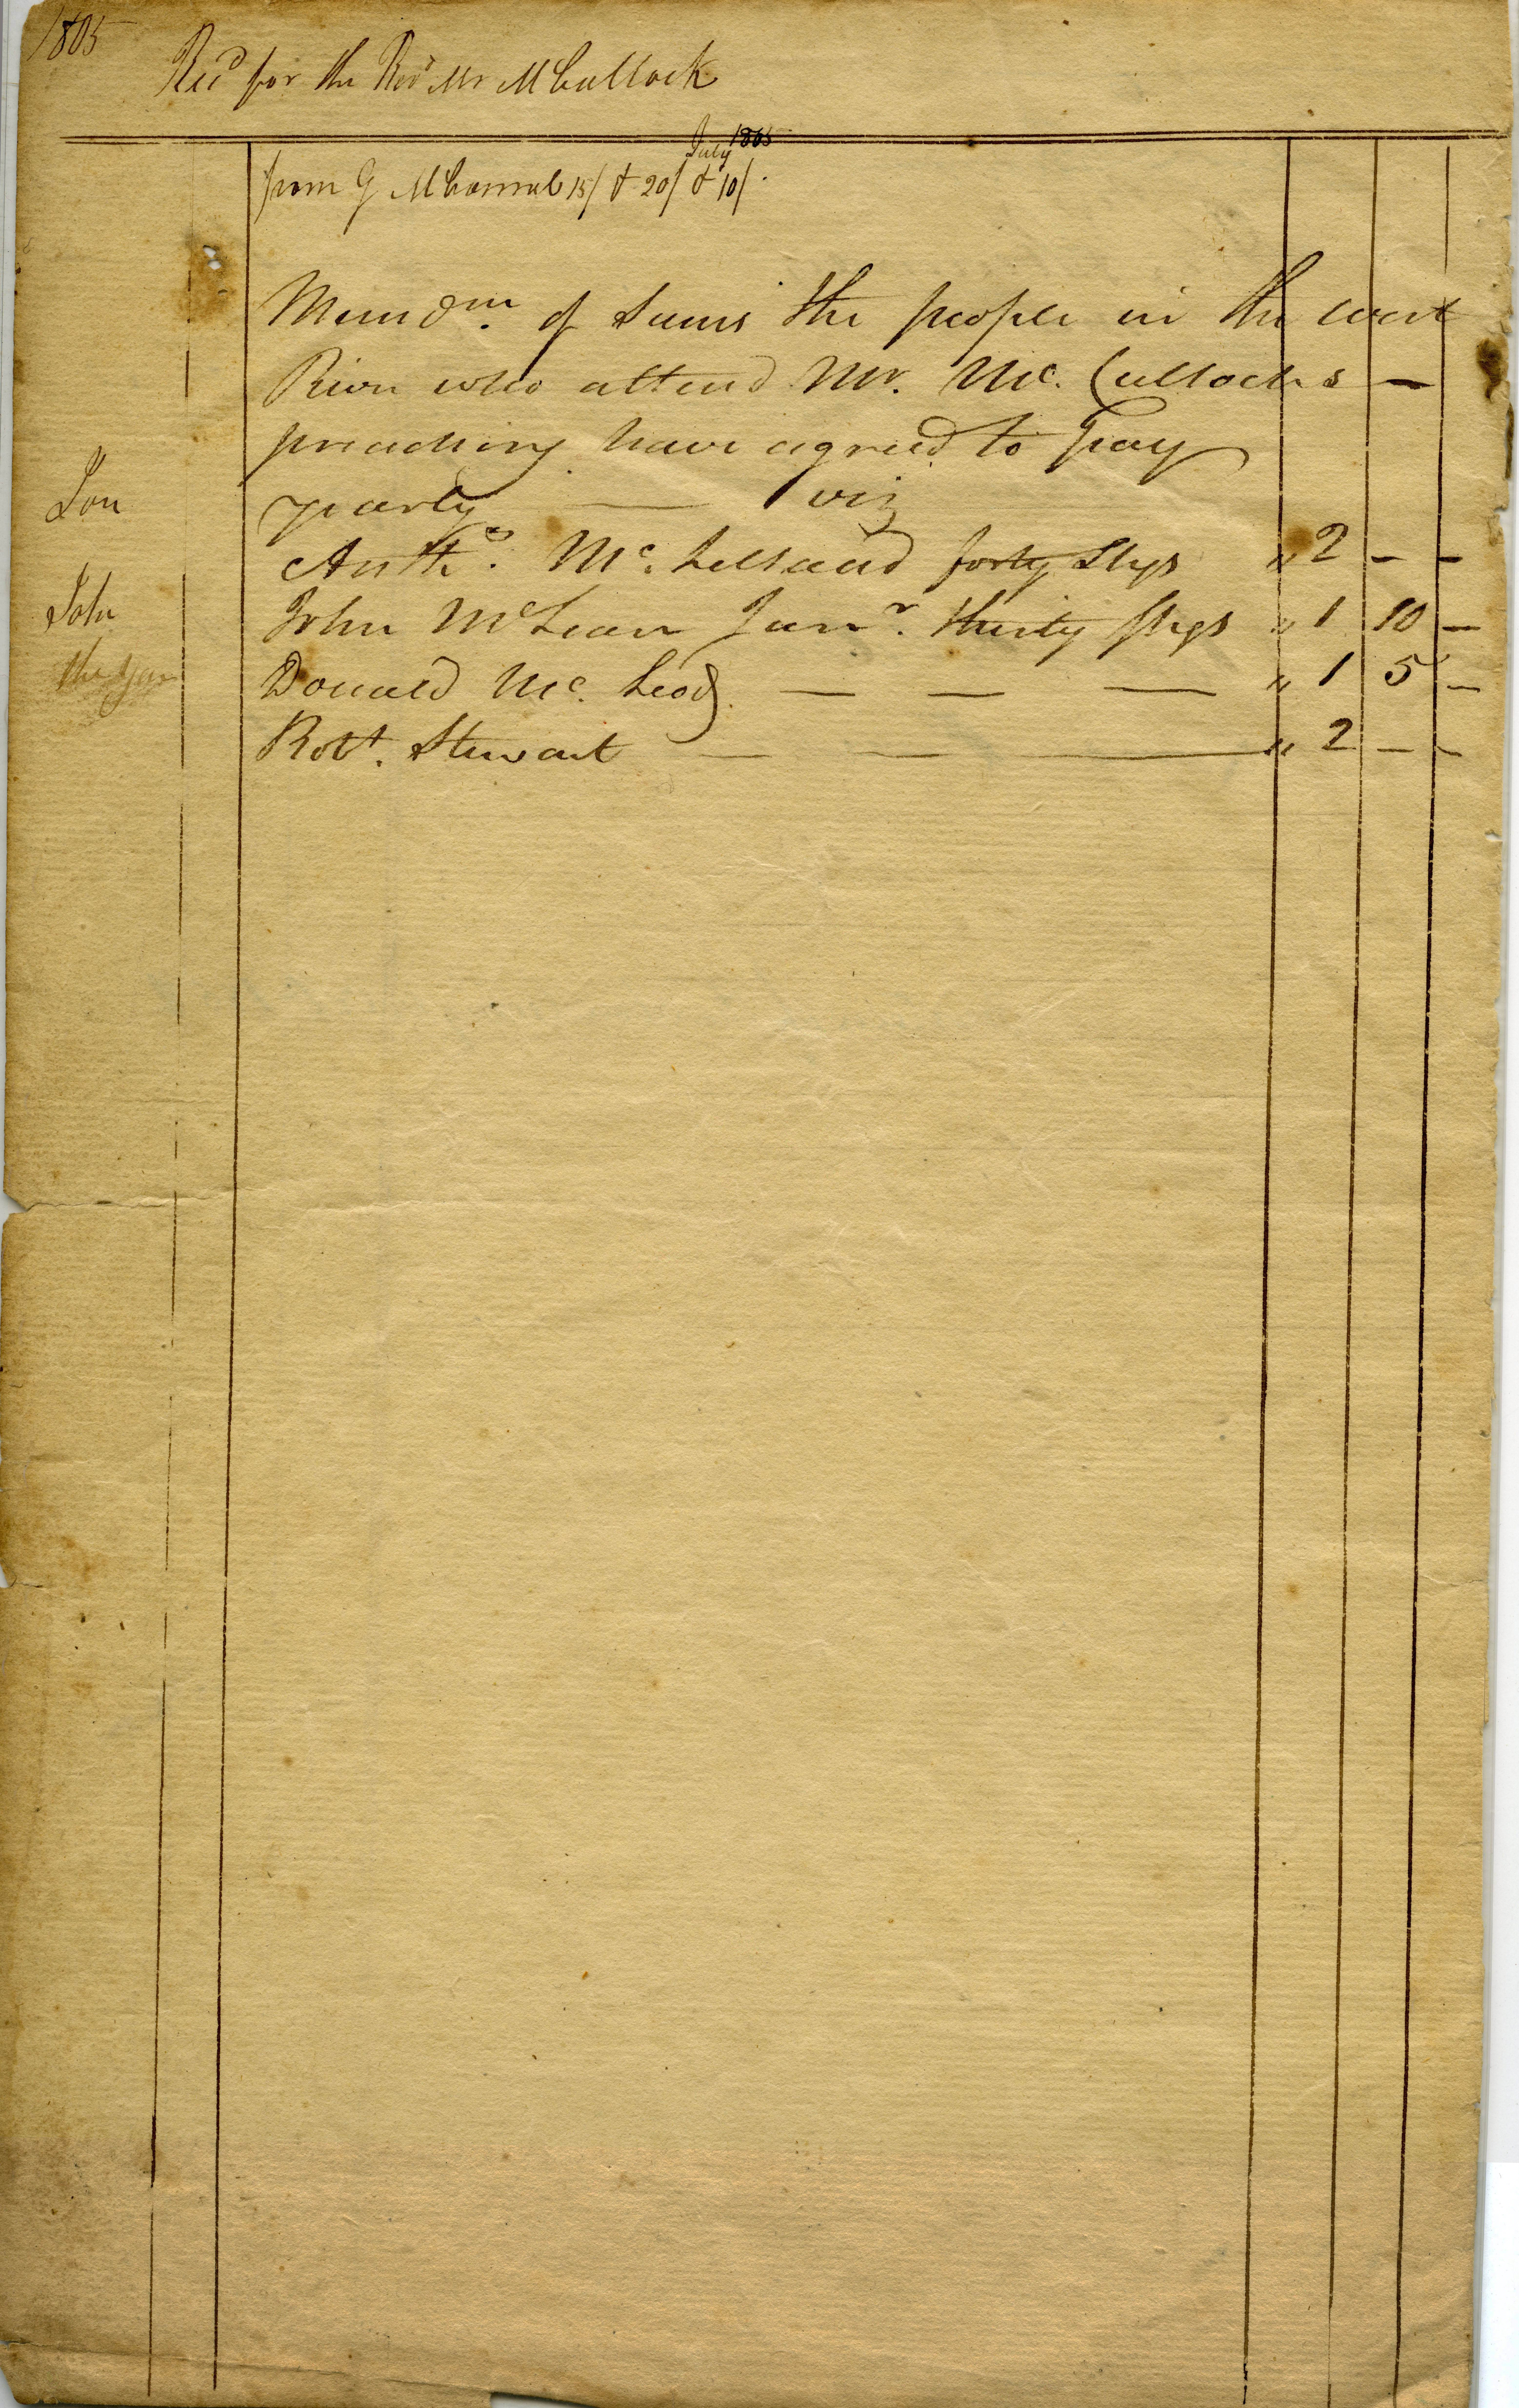 1805
Recd for the Revd Mr McCulloch
July 1805
from G 15/ & 20/ & 10/.
Memdm. of Sums the people in the west
River who attend Mr. Mc. Cullochs —
preaching have agreed to pay
yearly — viz
Anth. Mc. Lelland forty Shgs " 2 — —
John McLean Junr. thirty Shgs " 1 10 —
Donald Mc. Leod — — — " 1 5 —
Robt. Stewart — — " 2 — —
John